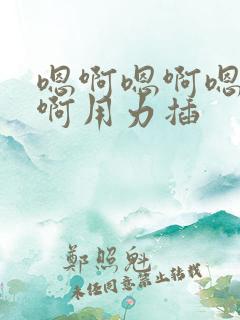 嗯啊嗯啊嗯
啊用力插
鄭照魁
未经同意禁止转载